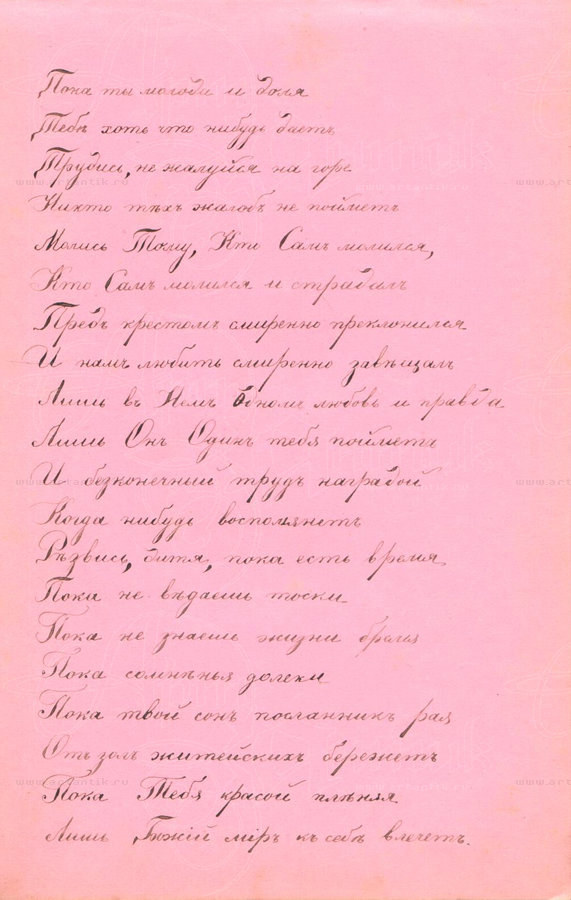 Пока ты молода и доля
Тебѣ хоть что нибудь даетъ
Трудись, не жалуйся на горе
Никто тѣхъ жалобъ не пойметъ
Молись Тому, Кто Самъ молился,
Кто Самъ молился и страдалъ
Предъ крестомъ смиренно преклонился
И намъ любить смиренно завѣщалъ
Лишь въ Немъ Одномъ любовь и правда
Лишь Онъ Одинъ тебя пойметъ
И безконечный трудъ наградой
Когда нибудь восполянетъ
Рѣзвись, дитя, пока есть время
Пока не вѣдаешь тоски
Пока не знаешь жизни бремя
Пока сомнѣнья далеки
Пока твой сонъ посланникъ рая
Отъ золъ житейскихъ бережетъ
Пока Тебя красой плѣняя
Лишь Божій міръ къ себѣ влечетъ.